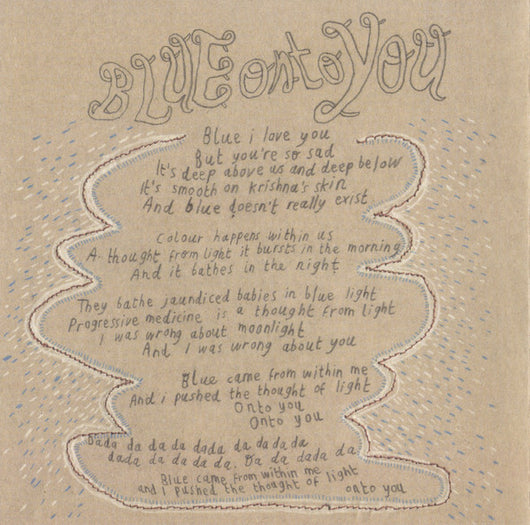 BLUE onto YOU
Blue i love you
But you're so sad
It's deep above us and deep below
It's smooth on krishna's skin
And blue doesn't really exist
Colour happens within us
A thought from light it bursts in the morning
And it bathes in the night
They bathe jaundiced babies in blue light
Progressive medicine is a thought from light
I was wrong about moonlight
And I was wrong about you
Blue came from within me
And i pushed the thought of light
Onto you
Onto you
Dada da da da dada da da da da
dada da da da da. Da da dada da
Blue came from within me
and I pushed the thought of light
onto you